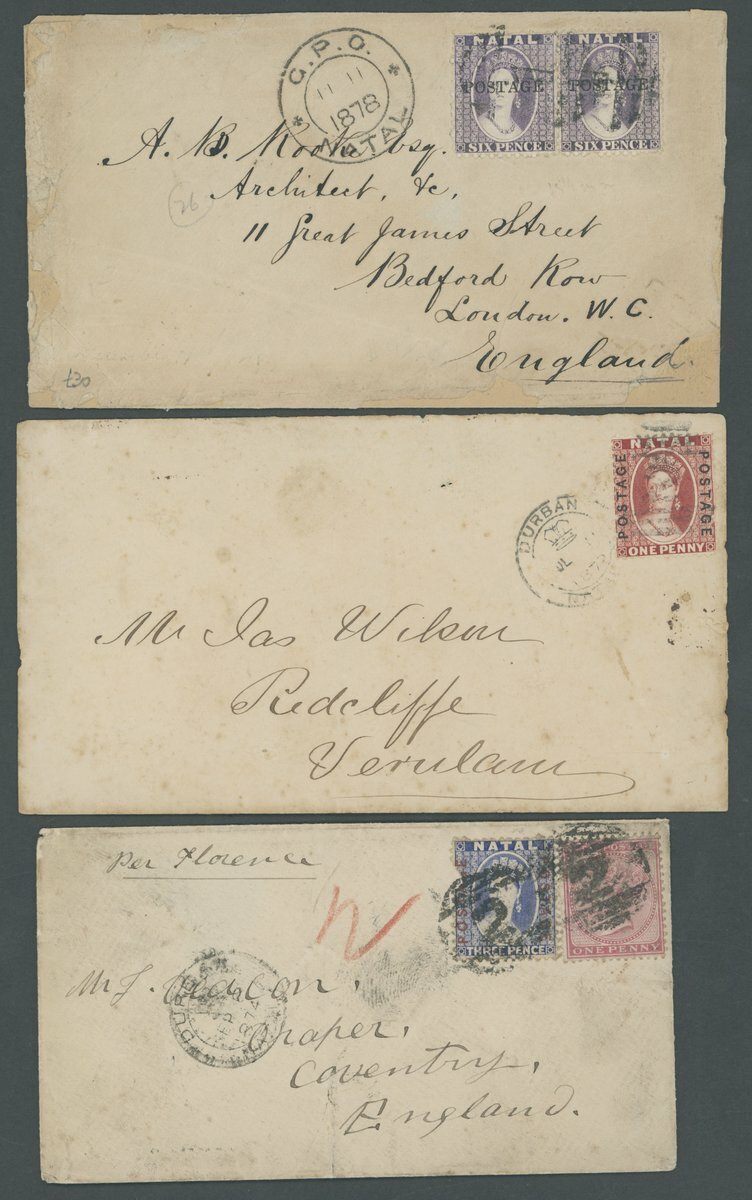 G.P.O.
11 11
1878
NATAL
NATAL NATAL
POSTAGE POSTAGE
SIX PENCE SIX PENCE
A. B. Esq.
Architect, &c,
26
11 Great James Street
Bedford Row
London. W.C.
England.
£30
NATAL
POSTAGE POSTAGE
ONE PENNY
DURBAN
JL
Mr Jas Wilson
Redcliffe
Verulam
Per Florence
NATAL
THREE PENCE
ONE PENNY
2 2
DURBAN
Mr J.
Draper,
Coventry,
England.